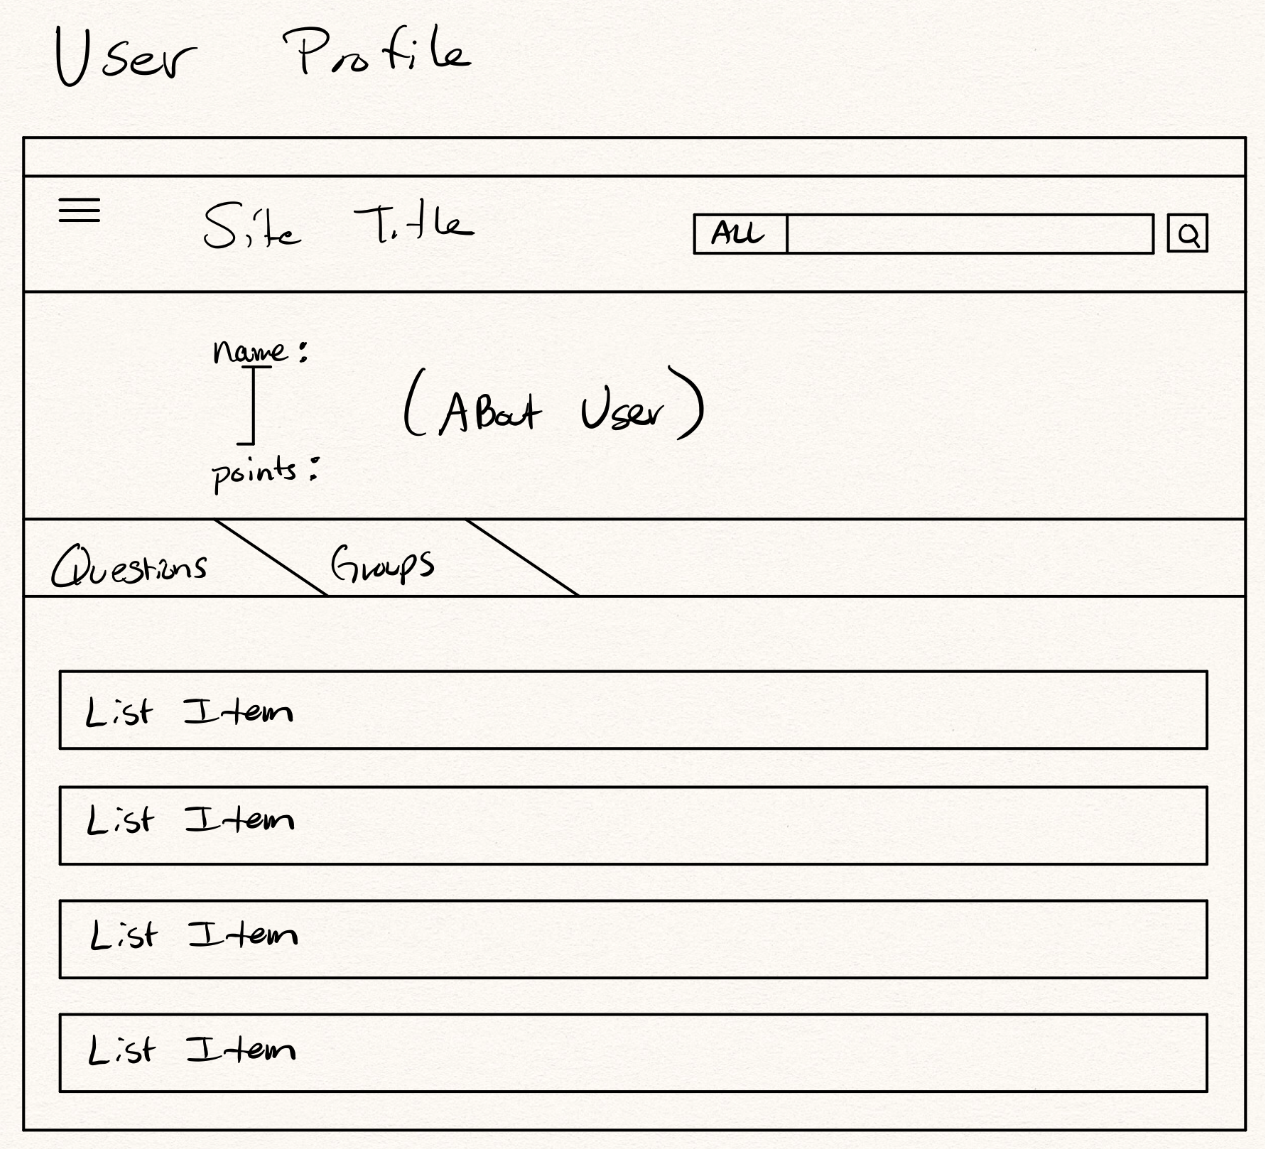 User Profile
Site Title
ALL
name:
(ABout User)
points:
Questions
Groups
List Item
List Item
List Item
List Item